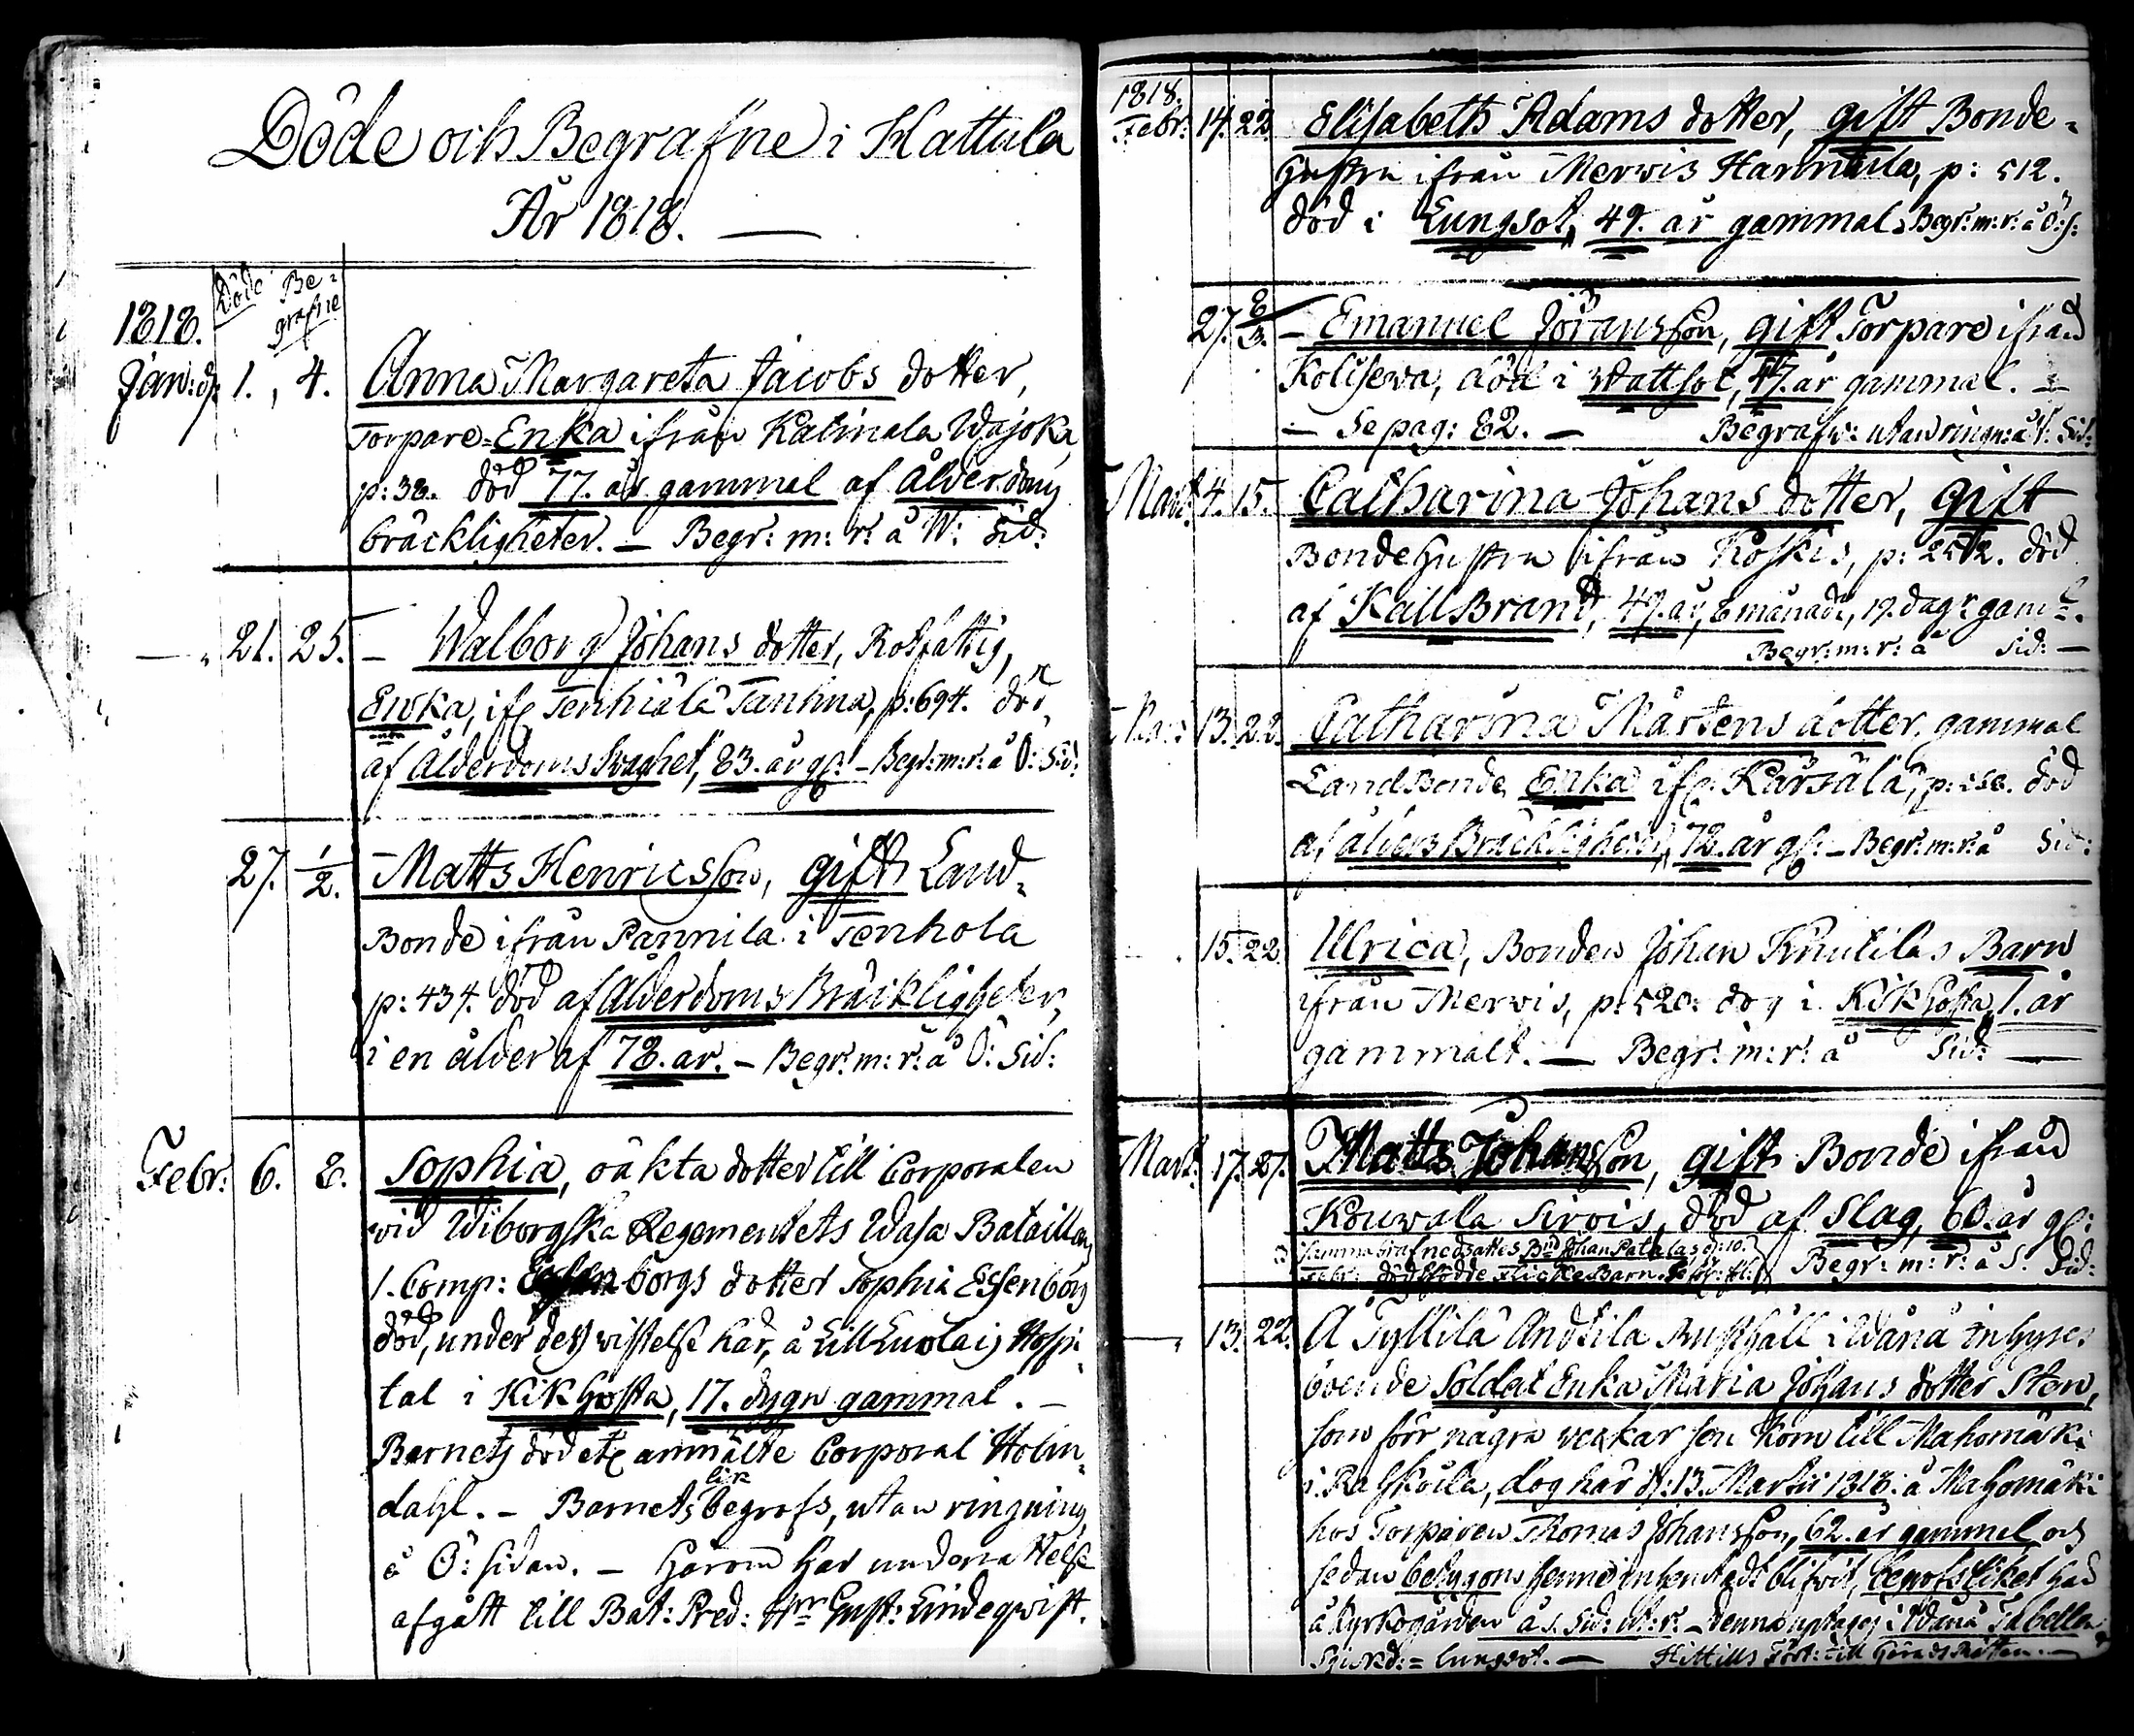 Döde och Begrafne i Hattula
År 1818. —
Döde Be-
grafne
1818.
Jan: d: 1., 4. Anna Margareta Jacobs dotter,
Torpare-Enka ifrån Katinala Wajoka,
p: 38. död 77. år gammal af Ålderdoms
bräckligheter. — Begr: m: r: å W: Sid:
— 21. 25. — Walborg Johans dotter, Rotfattig,
Enka, ifr Tenhiälä Tanhua, p: 694. död
af Ålderdoms Svaghet, 83. år gl: — Begr: m: r: å Ö: Sid:
27. 1/2. — Matts Henricsson, gift Land-
Bonde ifrån Pannila i Tenhola
p: 434. död af Ålderdoms Bräckligheter,
i en ålder af 78. år. — Begr: m: r: å Ö: Sid:
Febr: 6. 8. Sophia, oäkta dotter till Corporalen
vid Wiborgska Regementets Wasa Bataillon
1. Comp: borgs dotter Sophia Essenborg
död, under dess vistelse här, å Lill Luolais Hospi-
tal i Kikhosta, 17. dygn gammal. —
Barnets död etc anmälte Corporal Holm-
dahl. — Barnets lik begrofs, utan ringning,
å Ö: sidan. — Härom har underrättelse
afgått till Bat: Pred: Hrr Gust: Lindeqwist.
1818.
Febr: 14. 22. Elisabeth Adams dotter, gift Bonde-
hustru ifrån Merwis Harhitula, p: 512.
död i Lungsot, 49. år gammal. Begr: m: r: å Ö: s:
27. 8/3. — Emanuel Jöransson, gift Torpare ifrån
Kolisewa, död i Wattsot, 47. år gammal. —
— Se pag: 82. — Begrafv: utan ringn: å V: Sid:
Mart: 4. 15. Catharina Johans dotter, gift
Bondehustru ifrån Koskis, p: 252. död
af Kallbrand, 49. år, 8 månader, 19. dagr gaml.
Begr: m: r: å Sid: —
Mart: 13. 22. Catharina Mårtens dotter, gammal
Landbonde Enka ifr: Kärsälä, p: död
af ålders Bräckligheter, 72. år gl: — Begr: m: r: å Sid:
— 15. 22. Ulrica, Bonden Johan Knutilas Barn
ifrån Merwis, p: 520. dog i Kikhosta, 1. år
gammalt. — Begr: m: r: å Sid: —
Mart: 17. 27. Matts Johansson, gift Bonde ifrån
Kouwala Sirois, död af Slag, 60. år gl:
i samma Graf nedsattes Bnd Johan Patalas
dödfödde Flicke Barn. Begr: m: r: å S: Sid:
— 13. 22. Å Tyllilä Andtila Rusthåll i Wånå Inhyses
boende Soldat Enka Maria Johans dotter Sten,
som för några veckar sen kom till Mahomäki
i Ralskoila, dog här d: 13. Martii 1818. å Mahomäki
hos Torparen Thomas Johansson, 62. år gammal och
sedan betygom henne inhemtadt blifvit, begrofs liket här
å Kyrkogården å s. Sid: u: r: — Denna uptages i Wånå Tabellen
Sjukd: = lungsot. —